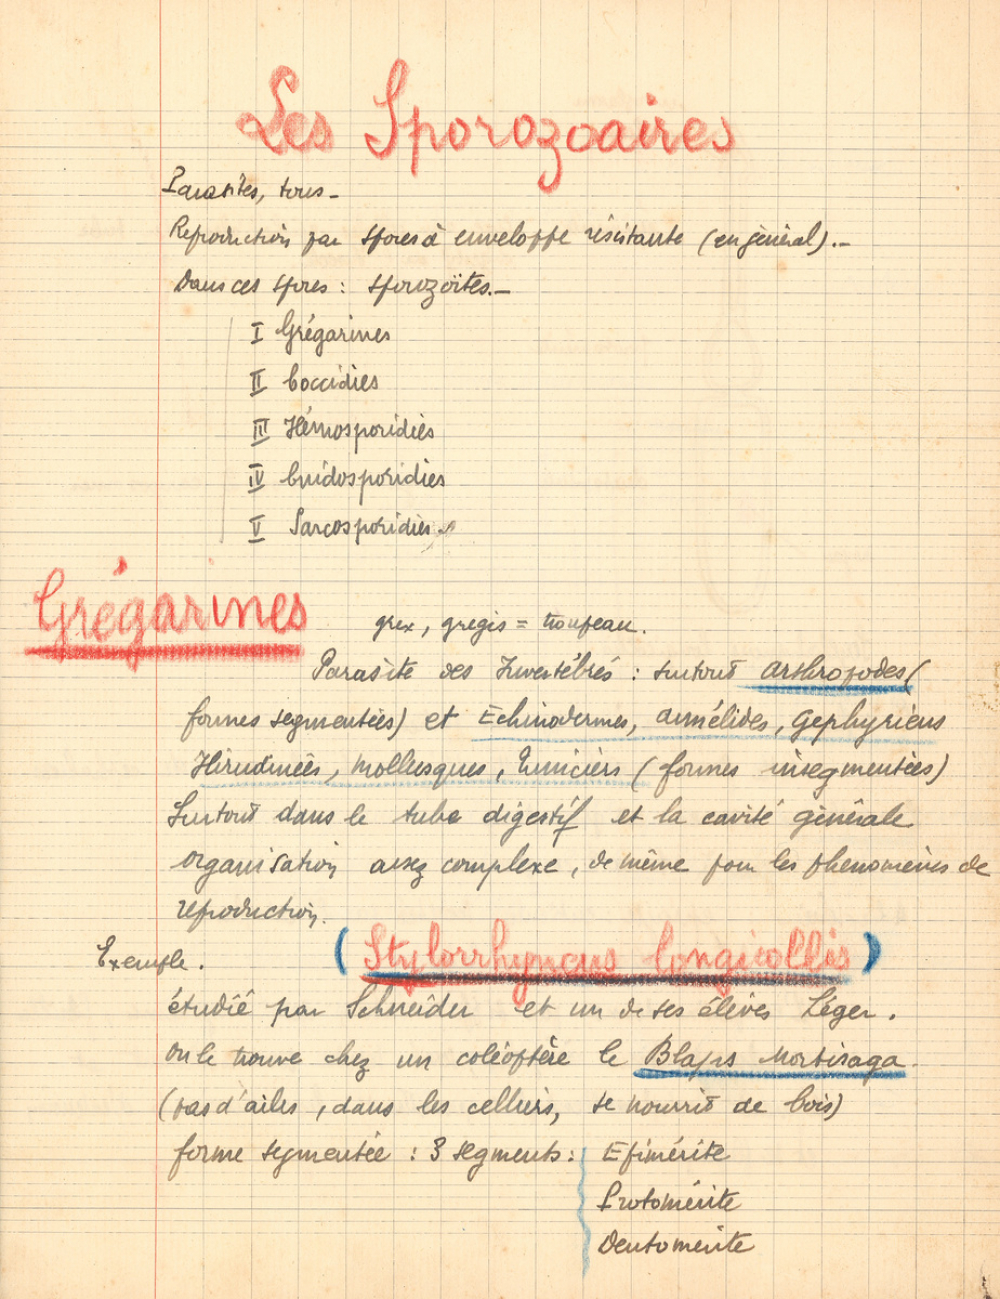 Les Sporozoaires
Parasites, tous –
Reproduction par spores à enveloppe résistante (en général). –
Dans ces spores : sporozoïtes. –
I Grégarines
II Coccidies
III Hémosporidies
IV Cnidosporidies
V Sarcosporidies.
Grégarines
grex, gregis = troupeau.
Parasite des Invertébrés : surtout arthropodes (
formes segmentées) et Echinodermes, annélides, Gephyriens
Hirudinées, Mollusques, Tuniciers (formes insegmentées)
Surtout dans le tube digestif et la cavité générale
organisation assez complexe, de même pour les phénomènes de
reproduction.
Exemple.
(Stylorrhyncus longicollis)
étudié par Schneider et un de ses élèves Léger.
On le trouve chez un coléoptère le Blaps Mortisaga.
(pas d'ailes, dans les celliers, se nourrit de bois)
forme segmentée : 3 segments : Epimérite
Protomérite
Deutomérite